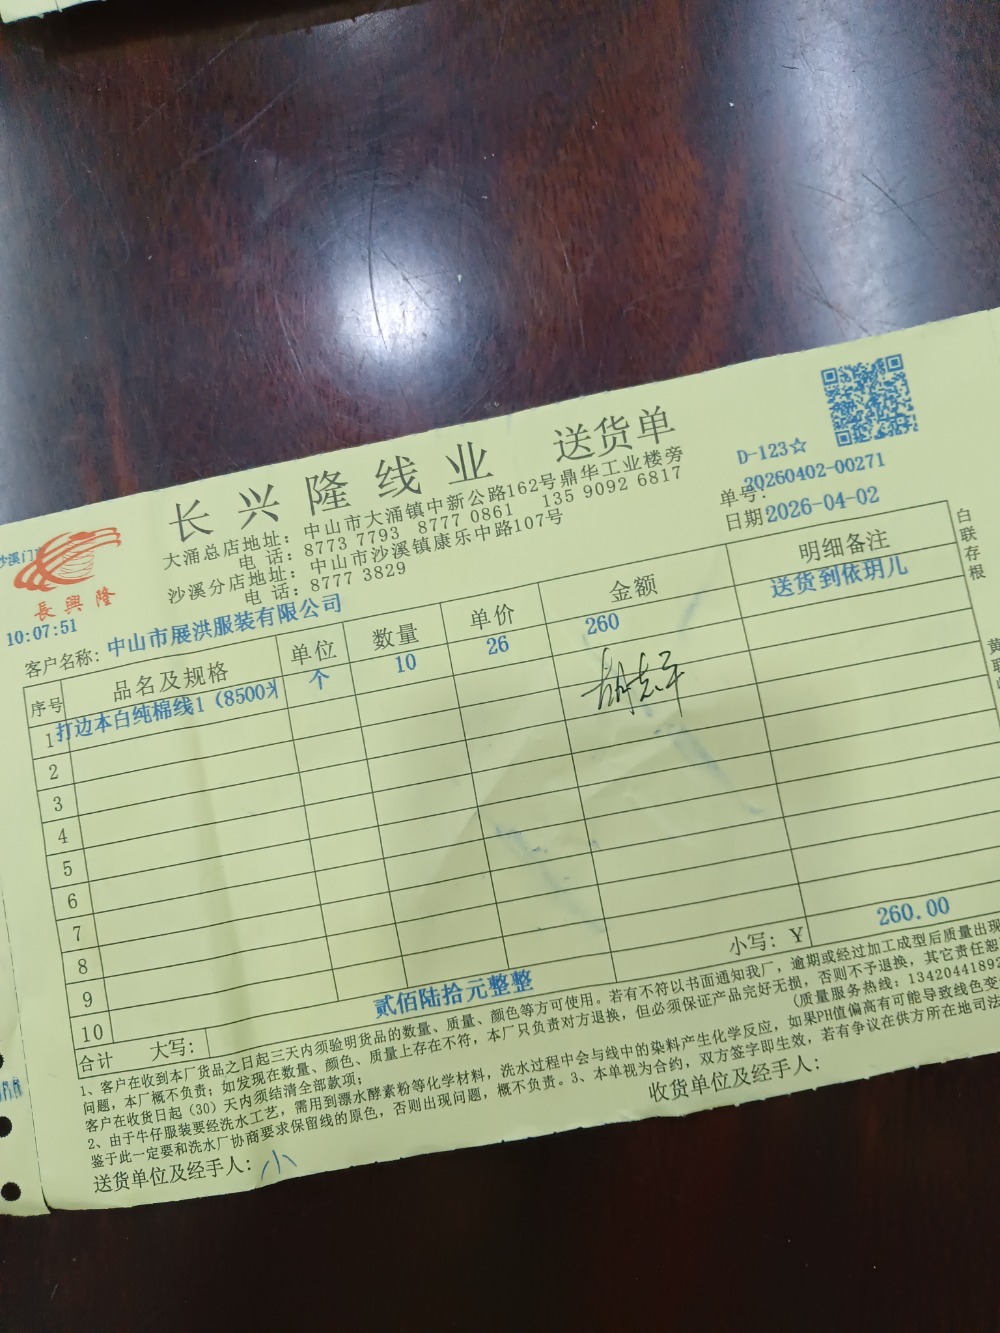 长兴隆线业 送货单
D-123☆
大涌总店地址：中山市大涌镇中新公路162号鼎华工业楼旁
电话：8773 7793 8777 0861 135 9092 6817
沙溪分店地址：中山市沙溪镇康乐中路107号
电话：8777 3829
单号：20260402-00271
日期 2026-04-02
沙溪门
長興隆
10:07:51
客户名称：中山市展洪服装有限公司
序号 品名及规格 单位 数量 单价 金额 明细备注
1 打边本白纯棉线1（8500米 个 10 26 260 送货到依玥儿
2
3
4
5
6
7
8
9
10
合计 大写：贰佰陆拾元整整 小写：￥ 260.00
1、客户在收到本厂货品之日起三天内须验明货品的数量、质量、颜色等方可使用。若有不符以书面通知我厂，逾期或经过加工成型后质量出现
问题，本厂概不负责；如发现在数量、颜色、质量上存在不符，本厂只负责对方退换，但必须保证产品完好无损，否则不予退换，其它责任恕
客户在收货日起（30）天内须结清全部款项；
（质量服务热线：1342044189
2、由于牛仔服装要经洗水工艺，需用到漂水酵素粉等化学材料，洗水过程中会与线中的染料产生化学反应，如果PH值偏高有可能导致线色变
鉴于此一定要和洗水厂协商要求保留线的原色，否则出现问题，概不负责。3、本单视为合约，双方签字即生效，若有争议在供方所在地司法
送货单位及经手人：小
收货单位及经手人：
白联存根
黄联